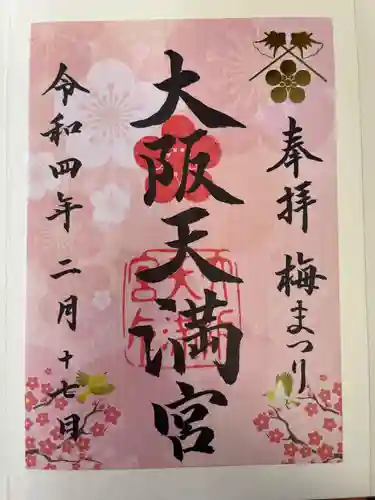 奉拝 梅まつり
大阪天満宮
令和四年二月十七日